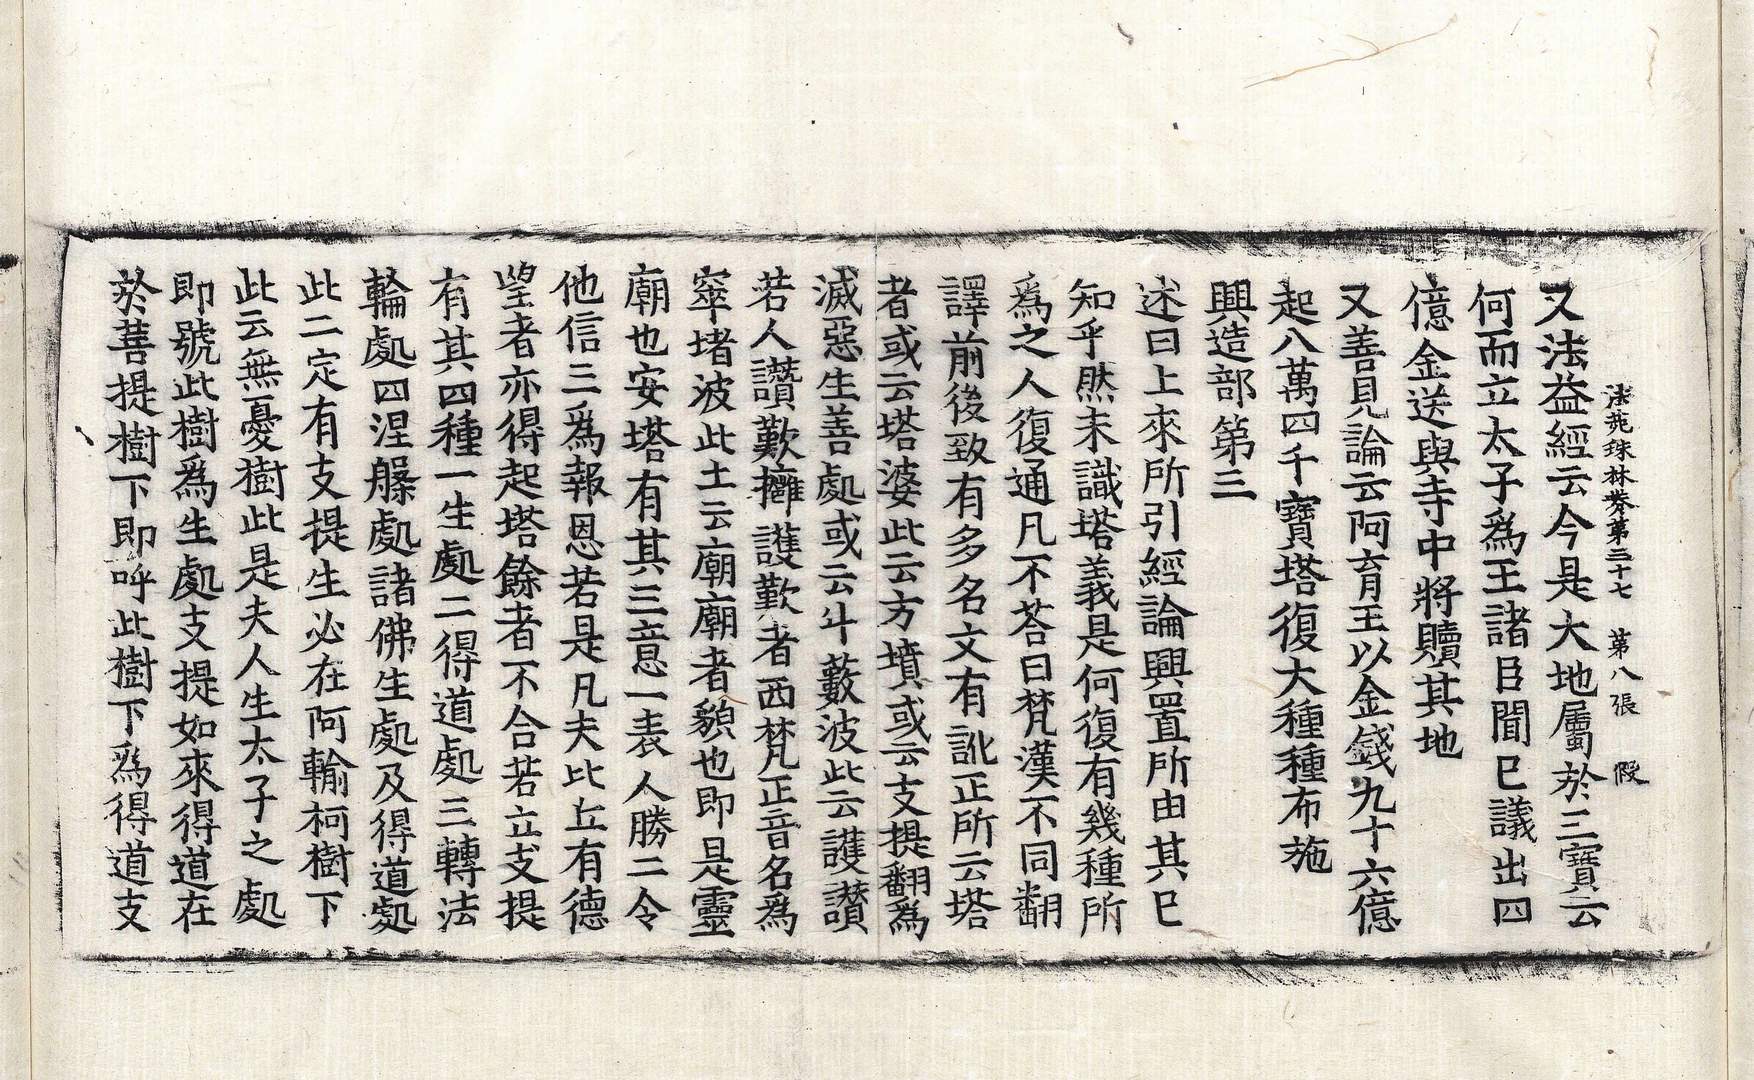 法苑珠林卷第三十七　第八張　假
又法益經云今是大地屬於三寶云
何而立太子爲王諸臣聞已議出四
億金送與寺中將贖其地
又善見論云阿育王以金錢九十六億
起八萬四千寶塔復大種種布施
興造部第三
述曰上來所引經論興置所由其已
知乎然未識塔義是何復有幾種所
爲之人復通凡不荅曰梵漢不同翻
譯前後致有多名文有訛正所云塔
者或云塔婆此云方墳或云支提翻爲
滅惡生善處或云斗藪波此云護讚
若人讚歎擁護歎者西梵正音名爲
窣堵波此土云廟廟者貌也即是靈
廟也安塔有其三意一表人勝二令
他信三爲報恩若是凡夫比丘有德
望者亦得起塔餘者不合若立支提
有其四種一生處二得道處三轉法
輪處四涅槃處諸佛生處及得道處
此二定有支提生必在阿輸柯樹下
此云無憂樹此是夫人生太子之處
即號此樹爲生處支提如來得道在
於菩提樹下即呼此樹下爲得道支